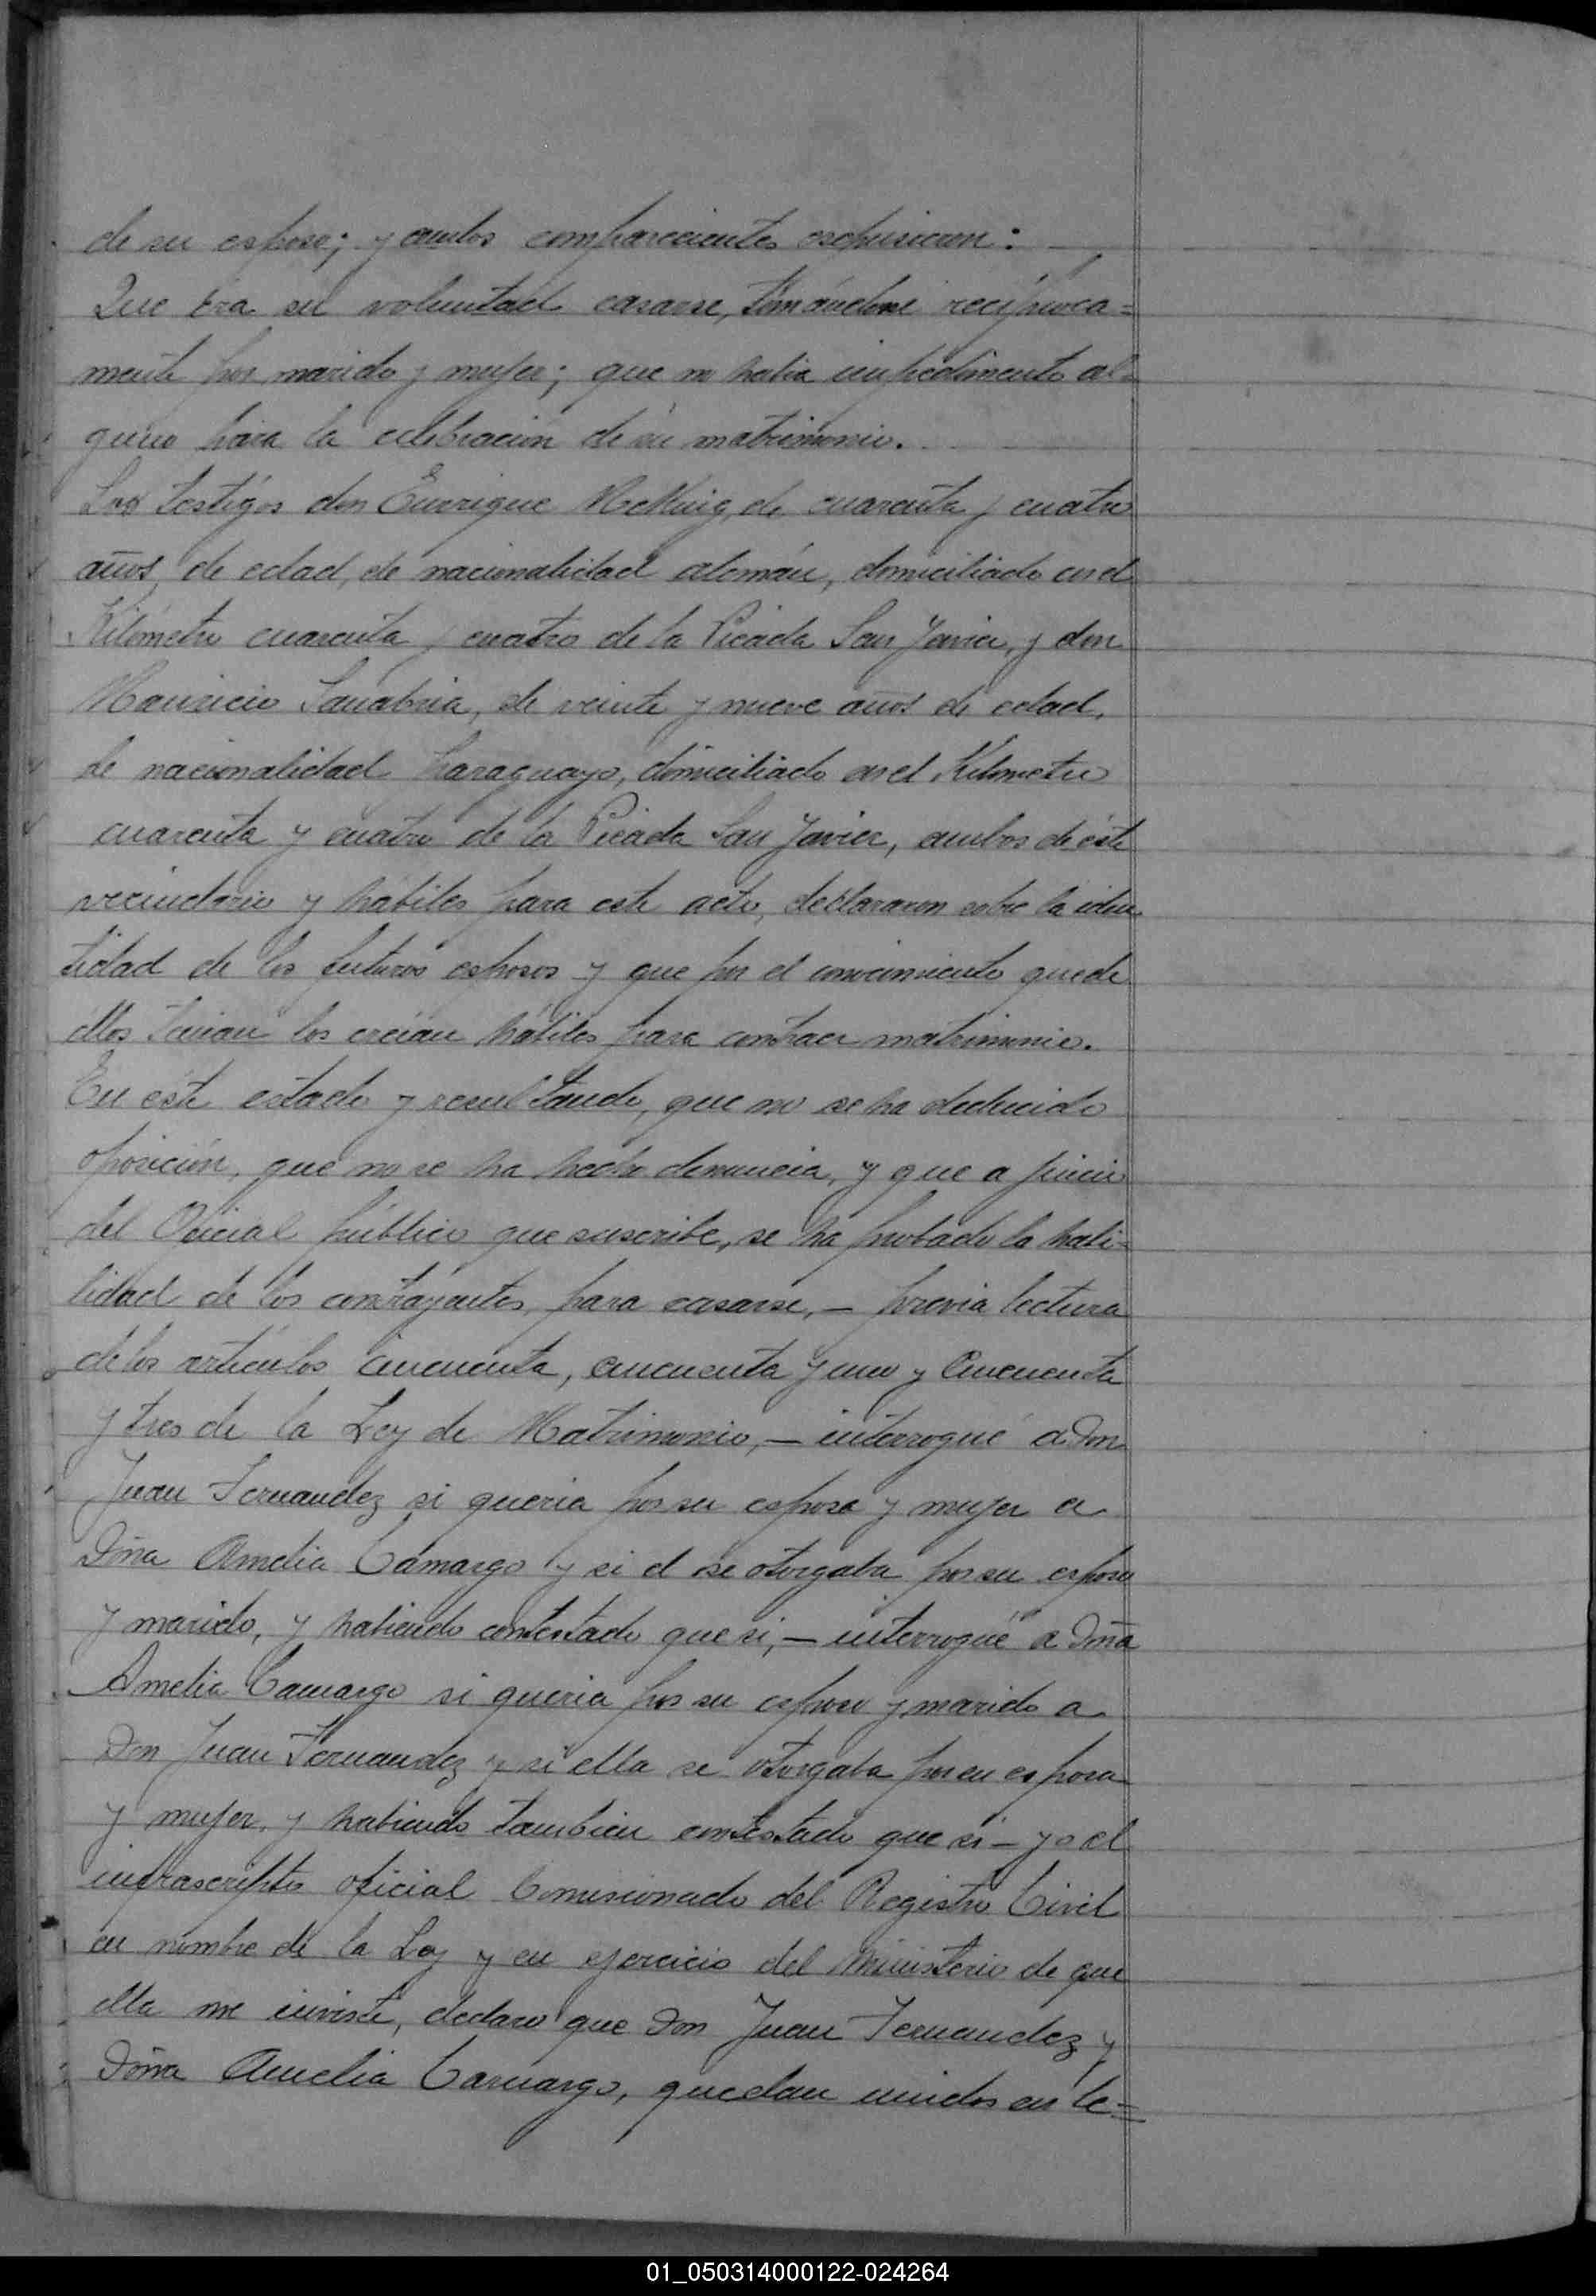 de su esposo; y ambos comparecientes expusieron:
Que éra su voluntad casarse, tomándose recíproca=
mente por marido y mujer; que no habia impedimento al=
guno para la celebracion de su matrimonio.
Los testigos don Enrrique de cuarenta y cuatro
años, de edad, de nacionalidad alemán, domiciliado en el
Kilómetro cuarenta y cuatro de la Picada San Javier, y don
Mauricio Sanabria, de veinte y nueve años de edad,
de nacionalidad paraguayo, domiciliado en el Kilometro
cuarenta y cuatro de la Picada San Javier, ambos de éste
vecindario y hábiles para este acto, declararon sobre la iden
tidad de los futuros esposos y que por el conocimiento que de
ellos tenian los creian hábiles para contraer matrimonio.
En éste estado y resultando, que no se ha deducido
oposición, que no se ha hecho denuncia, y que a juicio
del Oficial público que suscribe, se ha probado la habi=
lidad de los contrayentes, para casarse, — previa lectura
de los artículos cincuenta, cincuenta y uno y cincuenta
y tres de la Ley de Matrimonio, — interrogué a Don
Juan Fernandez si queria por su esposa y mujer a
Doña Amelia Camargo y si el se otorgaba por su esposo
y marido, y habiendo contestado que si, — interrogué a Doña
Amelia Camargo si queria por su esposo y marido a
Don Juan Fernandez y si ella se otorgaba por su esposa
y mujer, y habiendo tambien contestado que si — yo el
infrascripto oficial Comisionado del Registro Civil
en nombre de la Ley y en ejercicio del Ministerio de que
ella me inviste, declaro que Don Juan Fernandez y
Doña Amelia Camargo, quedan unidos en le=
01_050314000122-024264